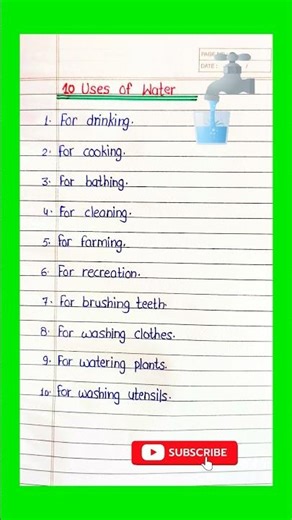 PAGE NO.
DATE: / /
10 Uses of Water
1. For drinking.
2. For cooking.
3. For bathing.
4. For cleaning.
5. For farming.
6. For recreation.
7. For brushing teeth.
8. For washing clothes.
9. For watering plants.
10. For washing utensils.
SUBSCRIBE